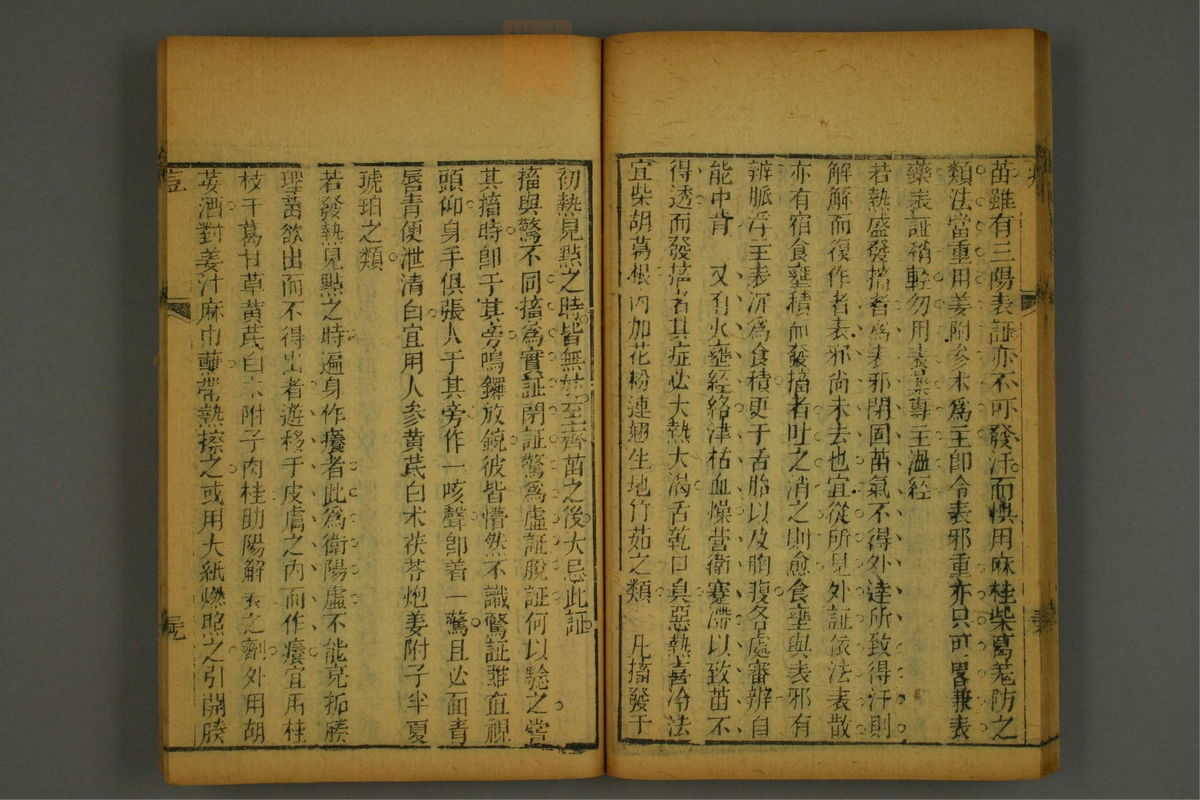 苗雖有三陽表証亦不可發汗而惧用麻桂柴葛羌防之
類法當重用姜附参术為主即令表邪重亦只可畧兼表
藥表証稍輕勿用表藥專主温經
若熱盛發搐者為表邪閉固苗氣不得外達所致得汗則
解解而復作者表邪尚未去也宜從所見外証依法表散
亦有宿食壅積而發搐者吐之消之則愈食壅與表邪有
辨脈浮主表沉為食積更于舌胎以及胸腹各處審辨自
能中肯 又有火壅經絡津枯血燥营衛蹇滯以致苗不
得透而發搐者其症必大熱大渴舌乾口臭惡熱喜冷法
宜柴胡葛根内加花粉連翹生地竹茹之類 凡搐發于
初熱見點之時皆無妨至齊苗之後大忌此証
搐與驚不同搐為實証閉証驚為虛証脫証何以騐之嘗
其搐時即于其旁鳴鑼放銃彼皆懵然不識驚証雖直視
頭仰身手俱張人于其旁作一咳聲即着一驚且必面青
唇青便泄清白宜用人参黄芪白术茯苓炮姜附子半夏
琥珀之類
若發熱見點之時遍身作癢者此為衛陽虛不能克拓腠
理苗欲出而不得出者遊移于皮膚之内而作癢宜用桂
枝干葛甘草黄芪白术附子肉桂助陽解表之劑外用胡
荽酒對姜汁麻巾蘸帶熱擦之或用大紙燃照之引開腠